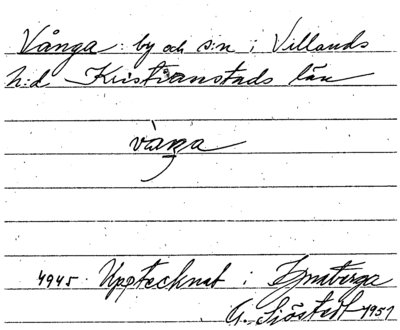 Vånga: by och s:n i Villands
h:d Kristianstads län
vàŋa
4945. Upptecknat i Ignaberga
G. Sjöstedt 1951